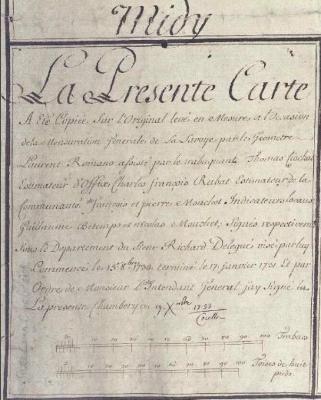 Midy
La Presente Carte
A Eté Copiée Sur L'Original levé en Mesure, a l'Occasion
de la Mensuration Générale de La Savoye par le Geometre
Laurent Romano assisté par le trabuquant Thomas
Estimateur d'Office Charles françois Rubat Estimateur de la
Communauté françois et pierre Mouchet Indicateurs locaux
Guillaume Betemps et nicolas Mouchet; Signés respectivement
Sous le Departement du Sieur Richard Delegué visé par luy
Commencé les 15 8bre 1730 terminé le 17 janvier 1731 Et par
Ordre de Monsieur l'Intendant Général jay Signé
La presente Chambery ce 19 Xbre 1733
Cocelli
Trabucs
Toises de huit
pieds